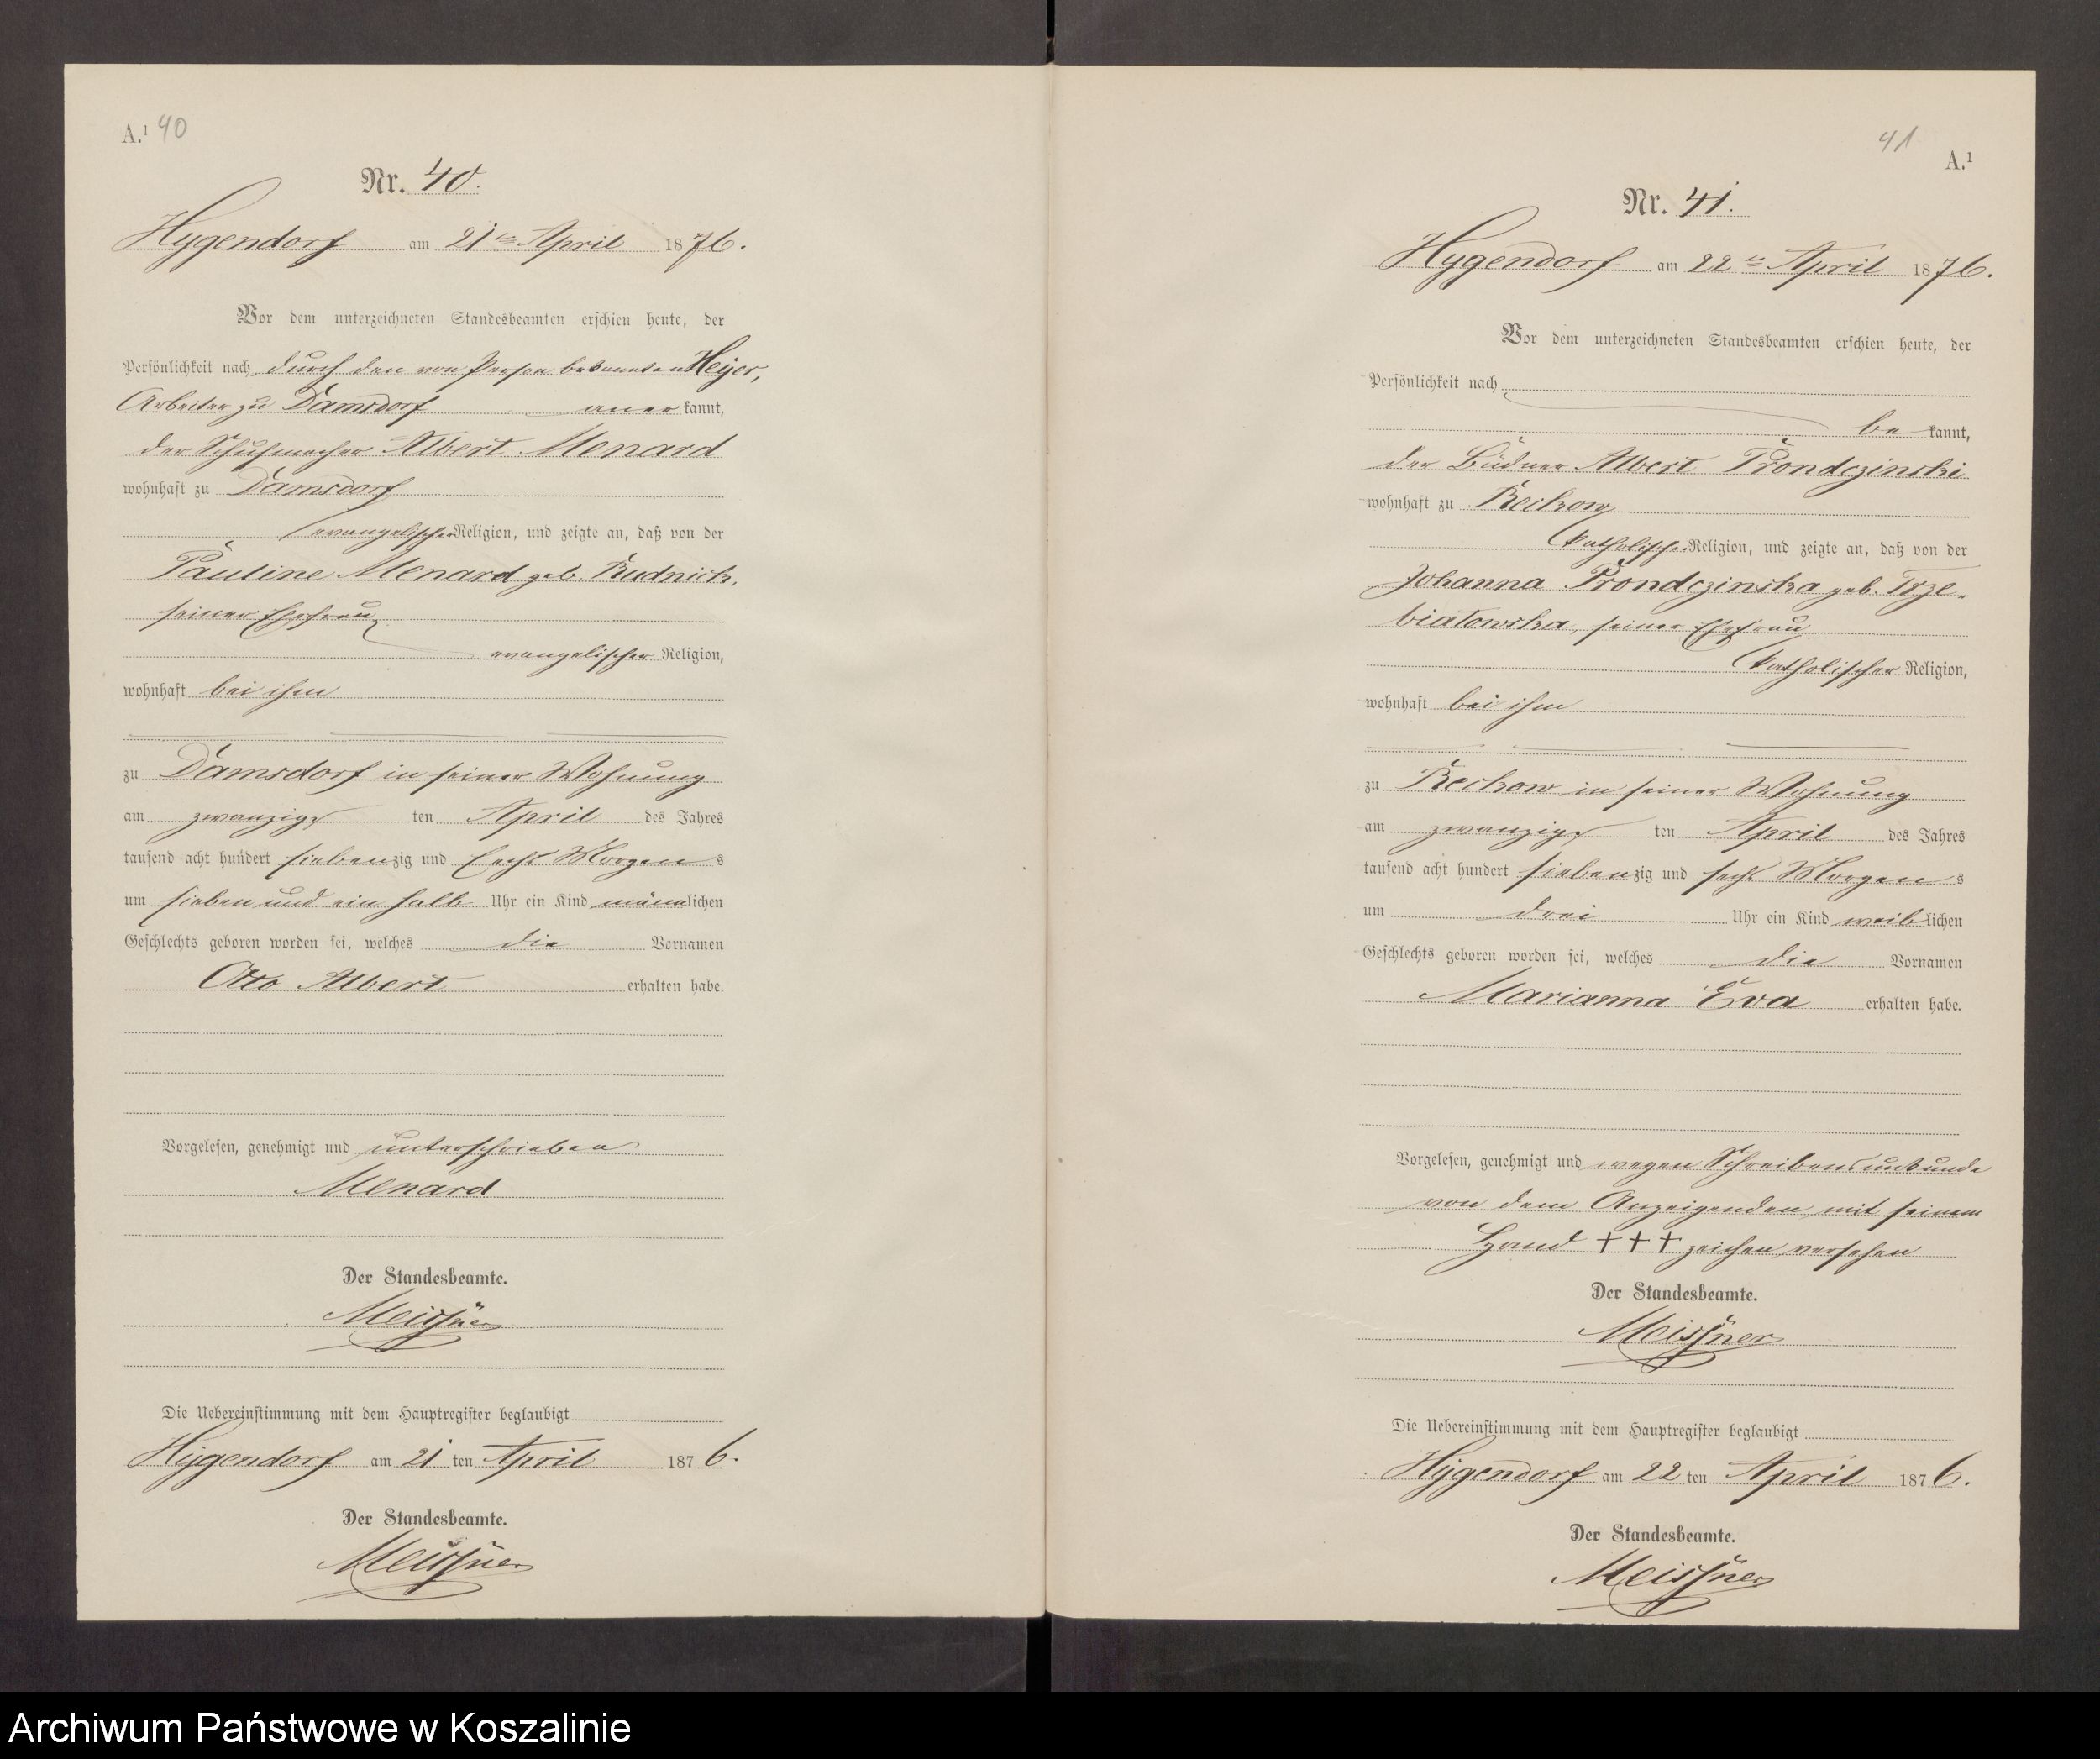 A.¹ 40
Nr. 40.
Hygendorf am 21ten April 1876.
Vor dem unterzeichneten Standesbeamten erschien heute, der
Persönlichkeit nach durch den von Person bekannten Heyer,
Arbeiter zu Damsdorf aner kannt,
der Schuhmacher Albert Menard
wohnhaft zu Damsdorf
evangelischer Religion, und zeigte an, daß von der
Pauline Menard geb. Rudnick,
seiner Ehefrau
evangelischer Religion,
wohnhaft bei ihm
zu Damsdorf in seiner Wohnung
am zwanzigs ten April des Jahres
tausend acht hundert siebenzig und sechs Morgens
um sieben und ein halb Uhr ein Kind männlichen
Geschlechts geboren worden sei, welches die Vornamen
Otto Albert erhalten habe.
Vorgelesen, genehmigt und unterschrieben
Menard
Der Standesbeamte.
Meissner
Die Uebereinstimmung mit dem Hauptregister beglaubigt
Hygendorf am 21 ten April 1876.
Der Standesbeamte.
Meissner
41
A.¹
Nr. 41.
Hygendorf am 22ten April 1876.
Vor dem unterzeichneten Standesbeamten erschien heute, der
Persönlichkeit nach
be kannt,
der Büdner Albert Prondczinski
wohnhaft zu Reckow
katholischer Religion, und zeigte an, daß von der
Johanna Prondczinska geb. Trze-
biatowska, seiner Ehefrau
katholischer Religion,
wohnhaft bei ihm
zu Reckow in seiner Wohnung
am zwanzigs ten April des Jahres
tausend acht hundert siebenzig und sechs Morgens
um drei Uhr ein Kind weiblichen
Geschlechts geboren worden sei, welches die Vornamen
Marianna Eva erhalten habe.
Vorgelesen, genehmigt und wegen Schreibensunkunde
von dem Anzeigenden mit seinem
Hand +++ zeichen versehen
Der Standesbeamte.
Meissner
Die Uebereinstimmung mit dem Hauptregister beglaubigt
Hygendorf am 22 ten April 1876.
Der Standesbeamte.
Meissner
Archiwum Państwowe w Koszalinie